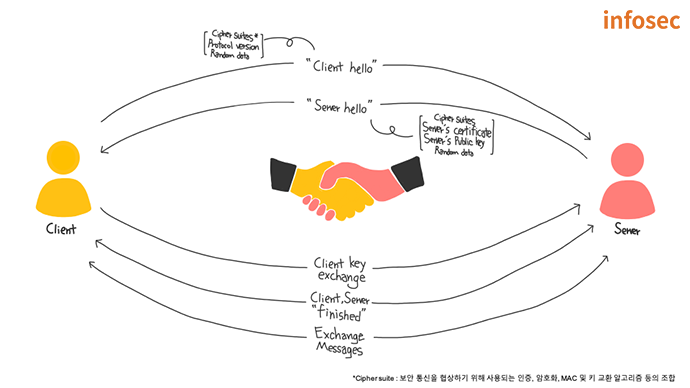 infosec
Cipher suites*
Protocol version
Random data
"Client hello"
"Server hello"
Cipher suites
Server's certificate
Server's Public key
Random data
Client
Server
Client key
exchange
Client, Server
"finished"
Exchange
Messages
*Cipher suite : 보안 통신을 협상하기 위해 사용되는 인증, 암호화, MAC 및 키 교환 알고리즘 등의 조합